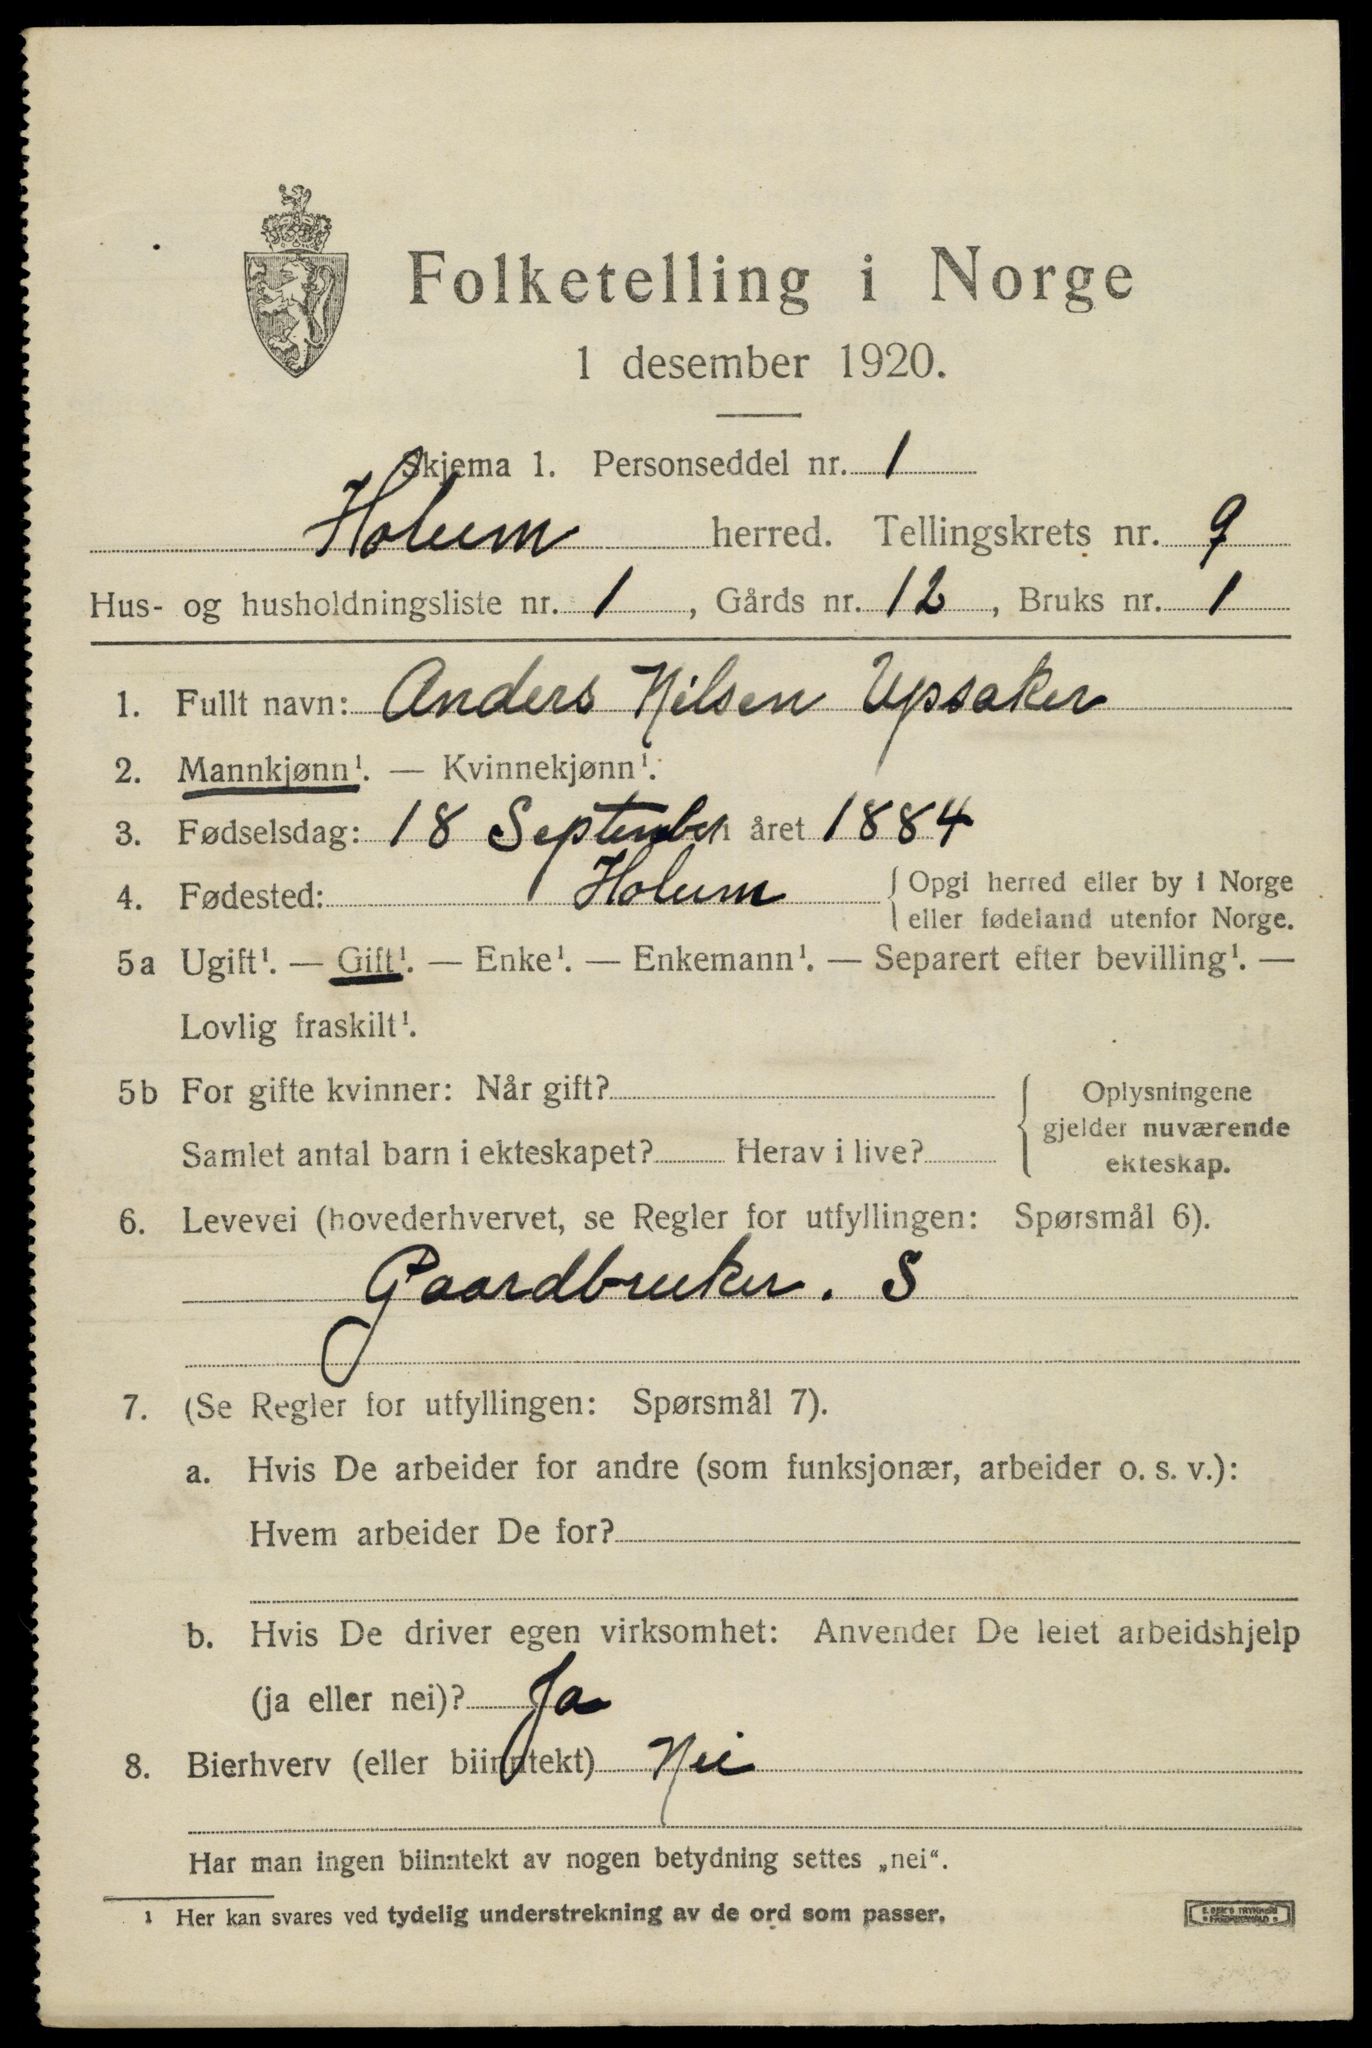 Folketelling i Norge
1 desember 1920.
Skjema 1. Personseddel nr. 1
Holum herred. Tellingskrets nr. 9
Hus- og husholdningsliste nr. 1, Gårds nr. 12, Bruks nr. 1
1. Fullt navn: Anders Nilsen Upsaker
2. Mannkjønn¹. — Kvinnekjønn¹.
3. Fødselsdag: 18 September i året 1884
4. Fødested: Holum {Opgi herred eller by i Norge
eller fødeland utenfor Norge.
5a Ugift¹. — Gift¹. — Enke¹. — Enkemann¹. — Separert efter bevilling¹. —
Lovlig fraskilt¹.
5b For gifte kvinner: Når gift? { Oplysningene
gjelder nuværende
Samlet antal barn i ekteskapet? Herav i live? ekteskap.
6. Levevei (hovederhvervet, se Regler for utfyllingen: Spørsmål 6).
Gaardbruker. S
7. (Se Regler for utfyllingen: Spørsmål 7).
a. Hvis De arbeider for andre (som funksjonær, arbeider o. s. v.):
Hvem arbeider De for?
b. Hvis De driver egen virksomhet: Anvender De leiet arbeidshjelp
(ja eller nei)? Ja
8. Bierhverv (eller biinntekt) Nei
Har man ingen biinntekt av nogen betydning settes „nei“.
¹ Her kan svares ved tydelig understrekning av de ord som passer.